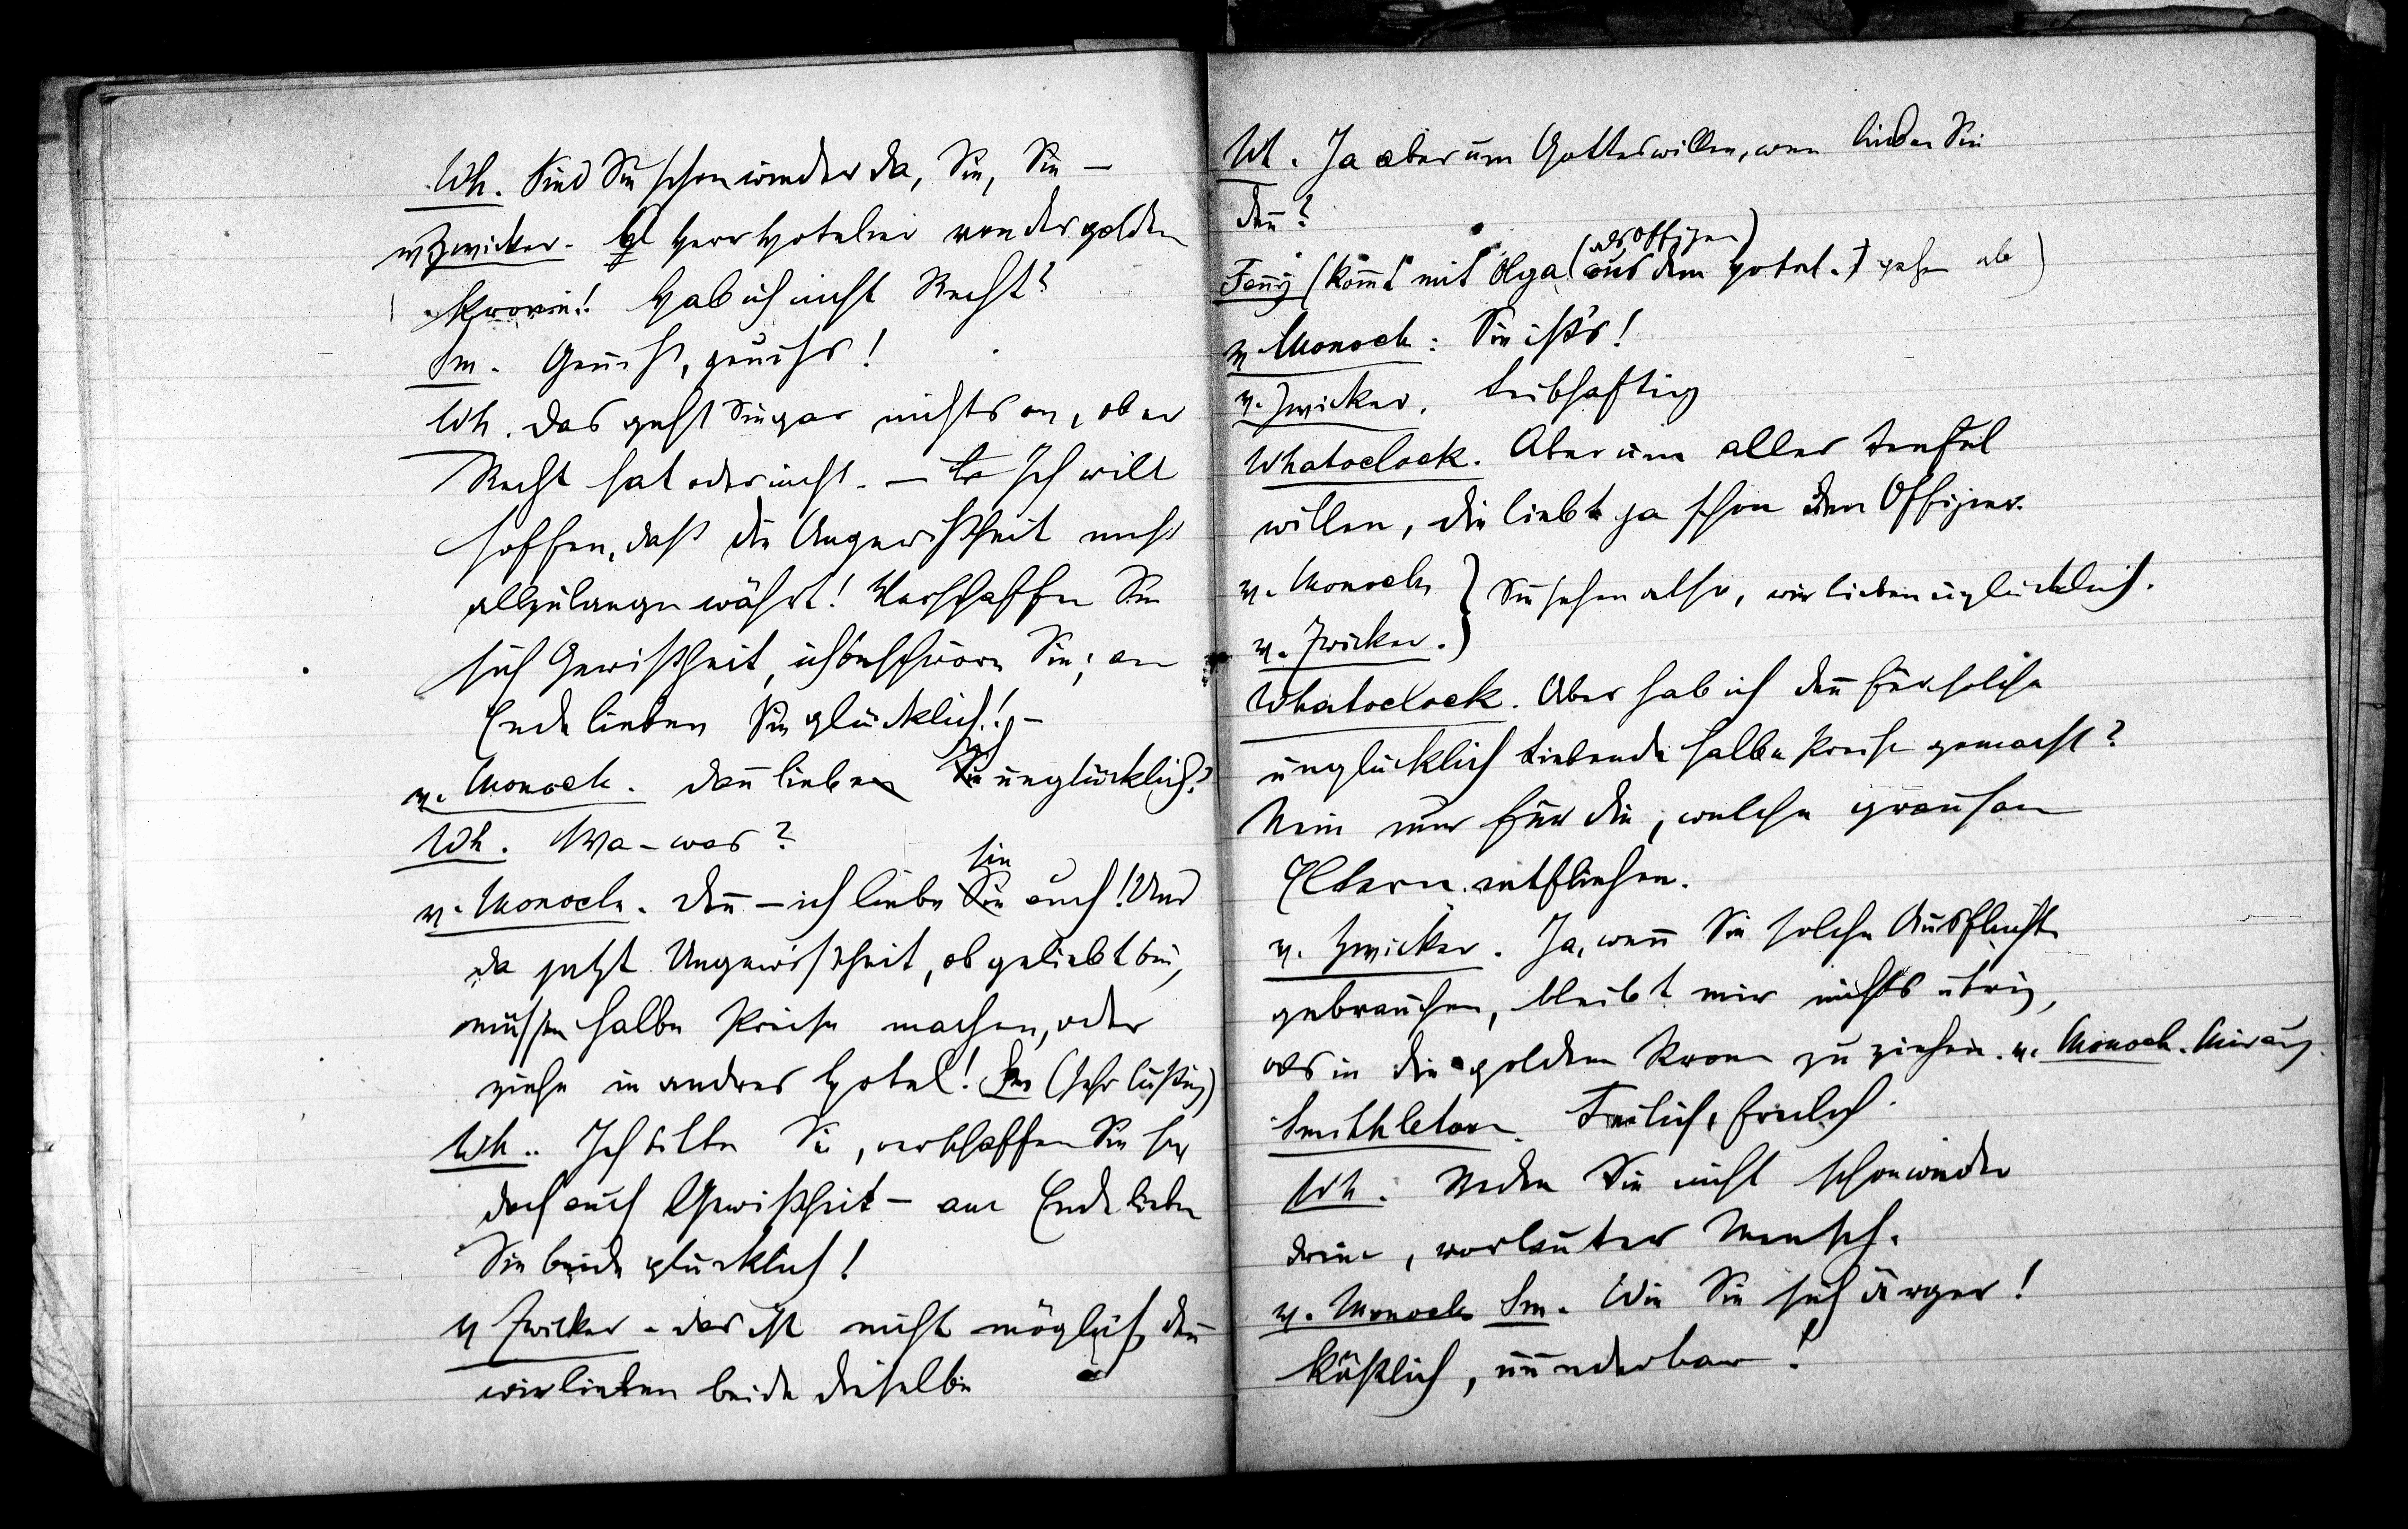 Wh. Sind Sie schon wieder da, Sie, Sie —
v Zwicker. Herr Hotelier von der golden
Krone! Hab ich nicht Recht?
Sm. Gewiß, gewiß!
Wh. Das geht Sie gar nichts an, ob er
Recht hat oder nicht. — Ich will
hoffen, daß die Ungewißheit nicht
allzulange währt! Verschaffen Sie
sich Gewißheit, ich beschwöre Sie; am
Ende lieben Sie glücklich! —
v. Monocle. Dan̄ lieben Sie unglücklich?
Wh. Wa-was?
v. Monocle. Den̄ — ich liebe sie auch! Und
da jetzt Ungewißheit, ob geliebt bin,
müssen halbe Preise machen, oder
ziehe in andres Hotel! Sm (sehr lustig)
Wh. Ich bitte Sie, verschaffen Sie sich
doch auch Gewißheit — am Ende lieben
Sie beide glücklich!
v Zwicker. Das ist nicht möglich, den̄
wir lieben beide dieselbe
Wh. Ja aber um Gotteswillen, wen lieben Sie
den̄?
(als Offizier)
Fanny (kom̄t mit Olga aus dem Hotel. gehen ab)
v Monocle: Sie ist's!
v. Zwicker. Leibhaftig
Whatoclock. Aber um aller Teufel
willen, die liebt ja schon den Offizier.
v. Monocle } Sie sehen also, wir lieben unglücklich.
v. Zwicker.
Whatoclock. Aber hab ich den̄ für solche
unglücklich Liebende halbe Preise gemacht?
Nein nur für die, welche grausam
Eltern entfliehen.
v. Zwicker. Ja, wen̄ Sie solche Ausflüchte
gebrauchen, bleibt mir nichts übrig,
als in die goldene Krone zu ziehen. v. Monocle. Mir auch
Smithleton. Freilich, freilich.
Wh. Reden Sie nicht schon wieder
drein, vorlauter Mensch.
v. Monocle Sm. Wie Sie sich ärgern!
köstlich, wunderbar!